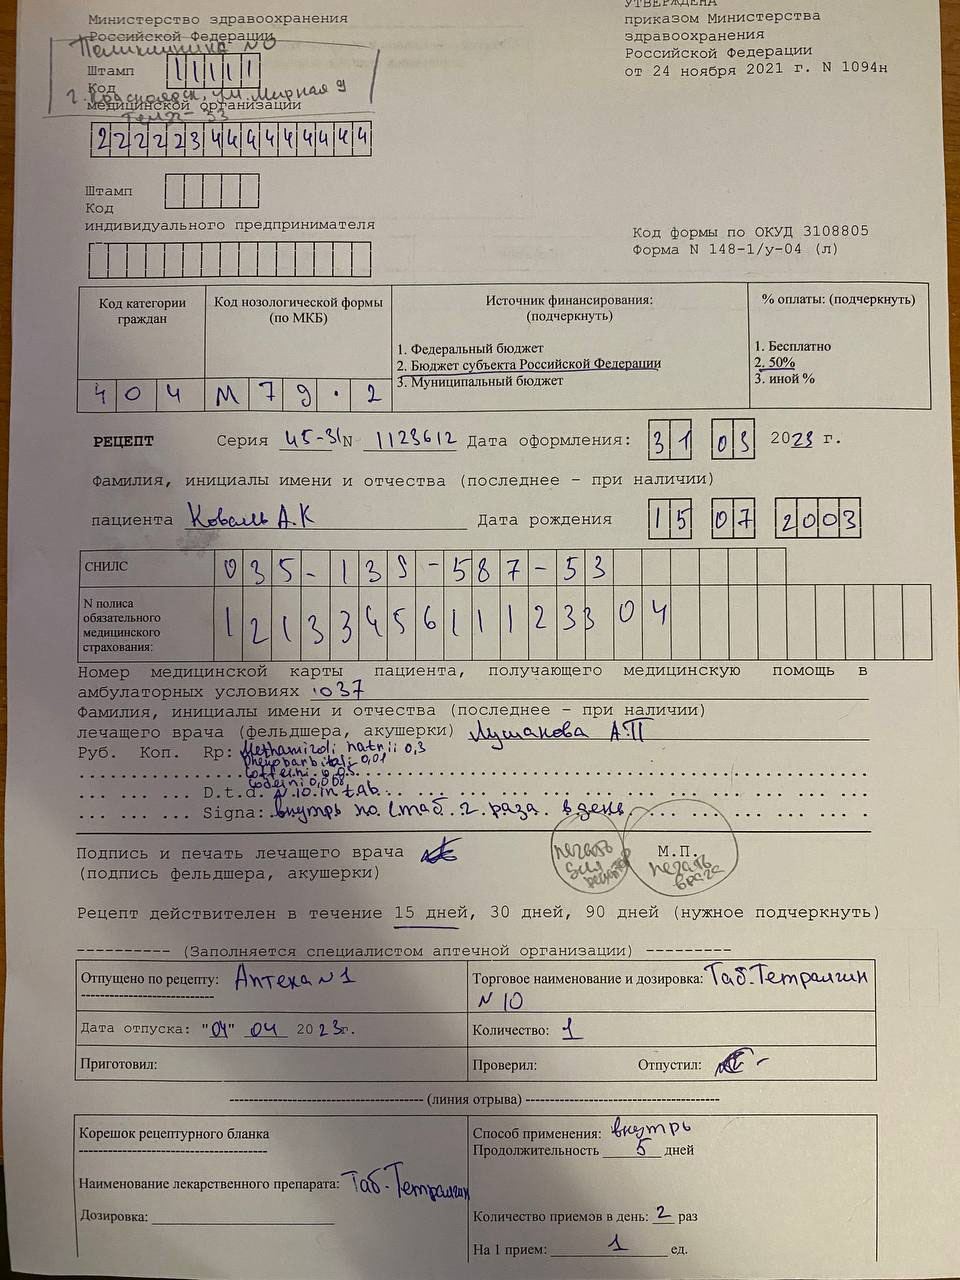 Министерство здравоохранения
Российской Федерации
УТВЕРЖДЕНА
приказом Министерства
здравоохранения
Российской Федерации
от 24 ноября 2021 г. N 1094н
Поликлиника №
Штамп 11111
Код
г. Красноярск, ул. Мирная 9
медицинской организации
222223444444444
Штамп
Код
индивидуального предпринимателя
Код формы по ОКУД 3108805
Форма N 148-1/у-04 (л)
Код категории граждан
404
Код нозологической формы (по МКБ)
М79.2
Источник финансирования:
(подчеркнуть)
1. Федеральный бюджет
2. Бюджет субъекта Российской Федерации
3. Муниципальный бюджет
% оплаты: (подчеркнуть)
1. Бесплатно
2. 50%
3. иной %
РЕЦЕПТ Серия 45-31 N 1123612 Дата оформления: 31 03 2023 г.
Фамилия, инициалы имени и отчества (последнее – при наличии)
пациента Коваль А.К Дата рождения 15 07 2003
СНИЛС 035-139-587-53
N полиса
обязательного
медицинского
страхования:
1213345611123304
Номер медицинской карты пациента, получающего медицинскую помощь в
амбулаторных условиях 037
Фамилия, инициалы имени и отчества (последнее – при наличии)
лечащего врача (фельдшера, акушерки) Лушакова А.П
Руб. Коп. Rp: Methamizoli natrii 0,3
Phenobarbitali 0,01
Coffeini 0,05
Codeini 0,008
D.t.d. N.10. in tab.
Signa: внутрь по 1 таб. 2 раза в день.
Подпись и печать лечащего врача
(подпись фельдшера, акушерки)
М.П.
печать для рецептов
печать врача
Рецепт действителен в течение 15 дней, 30 дней, 90 дней (нужное подчеркнуть)
---------- (Заполняется специалистом аптечной организации) ---------
Отпущено по рецепту: Аптека №1
Торговое наименование и дозировка: Таб. Тетралгин
№ 10
Дата отпуска: "04" 04 2023г.
Количество: 1
Приготовил:
Проверил: Отпустил:
(линия отрыва)
Корешок рецептурного бланка
Способ применения: внутрь
Продолжительность 5 дней
Наименование лекарственного препарата: Таб. Тетралгин
Дозировка:
Количество приемов в день: 2 раз
На 1 прием: 1 ед.